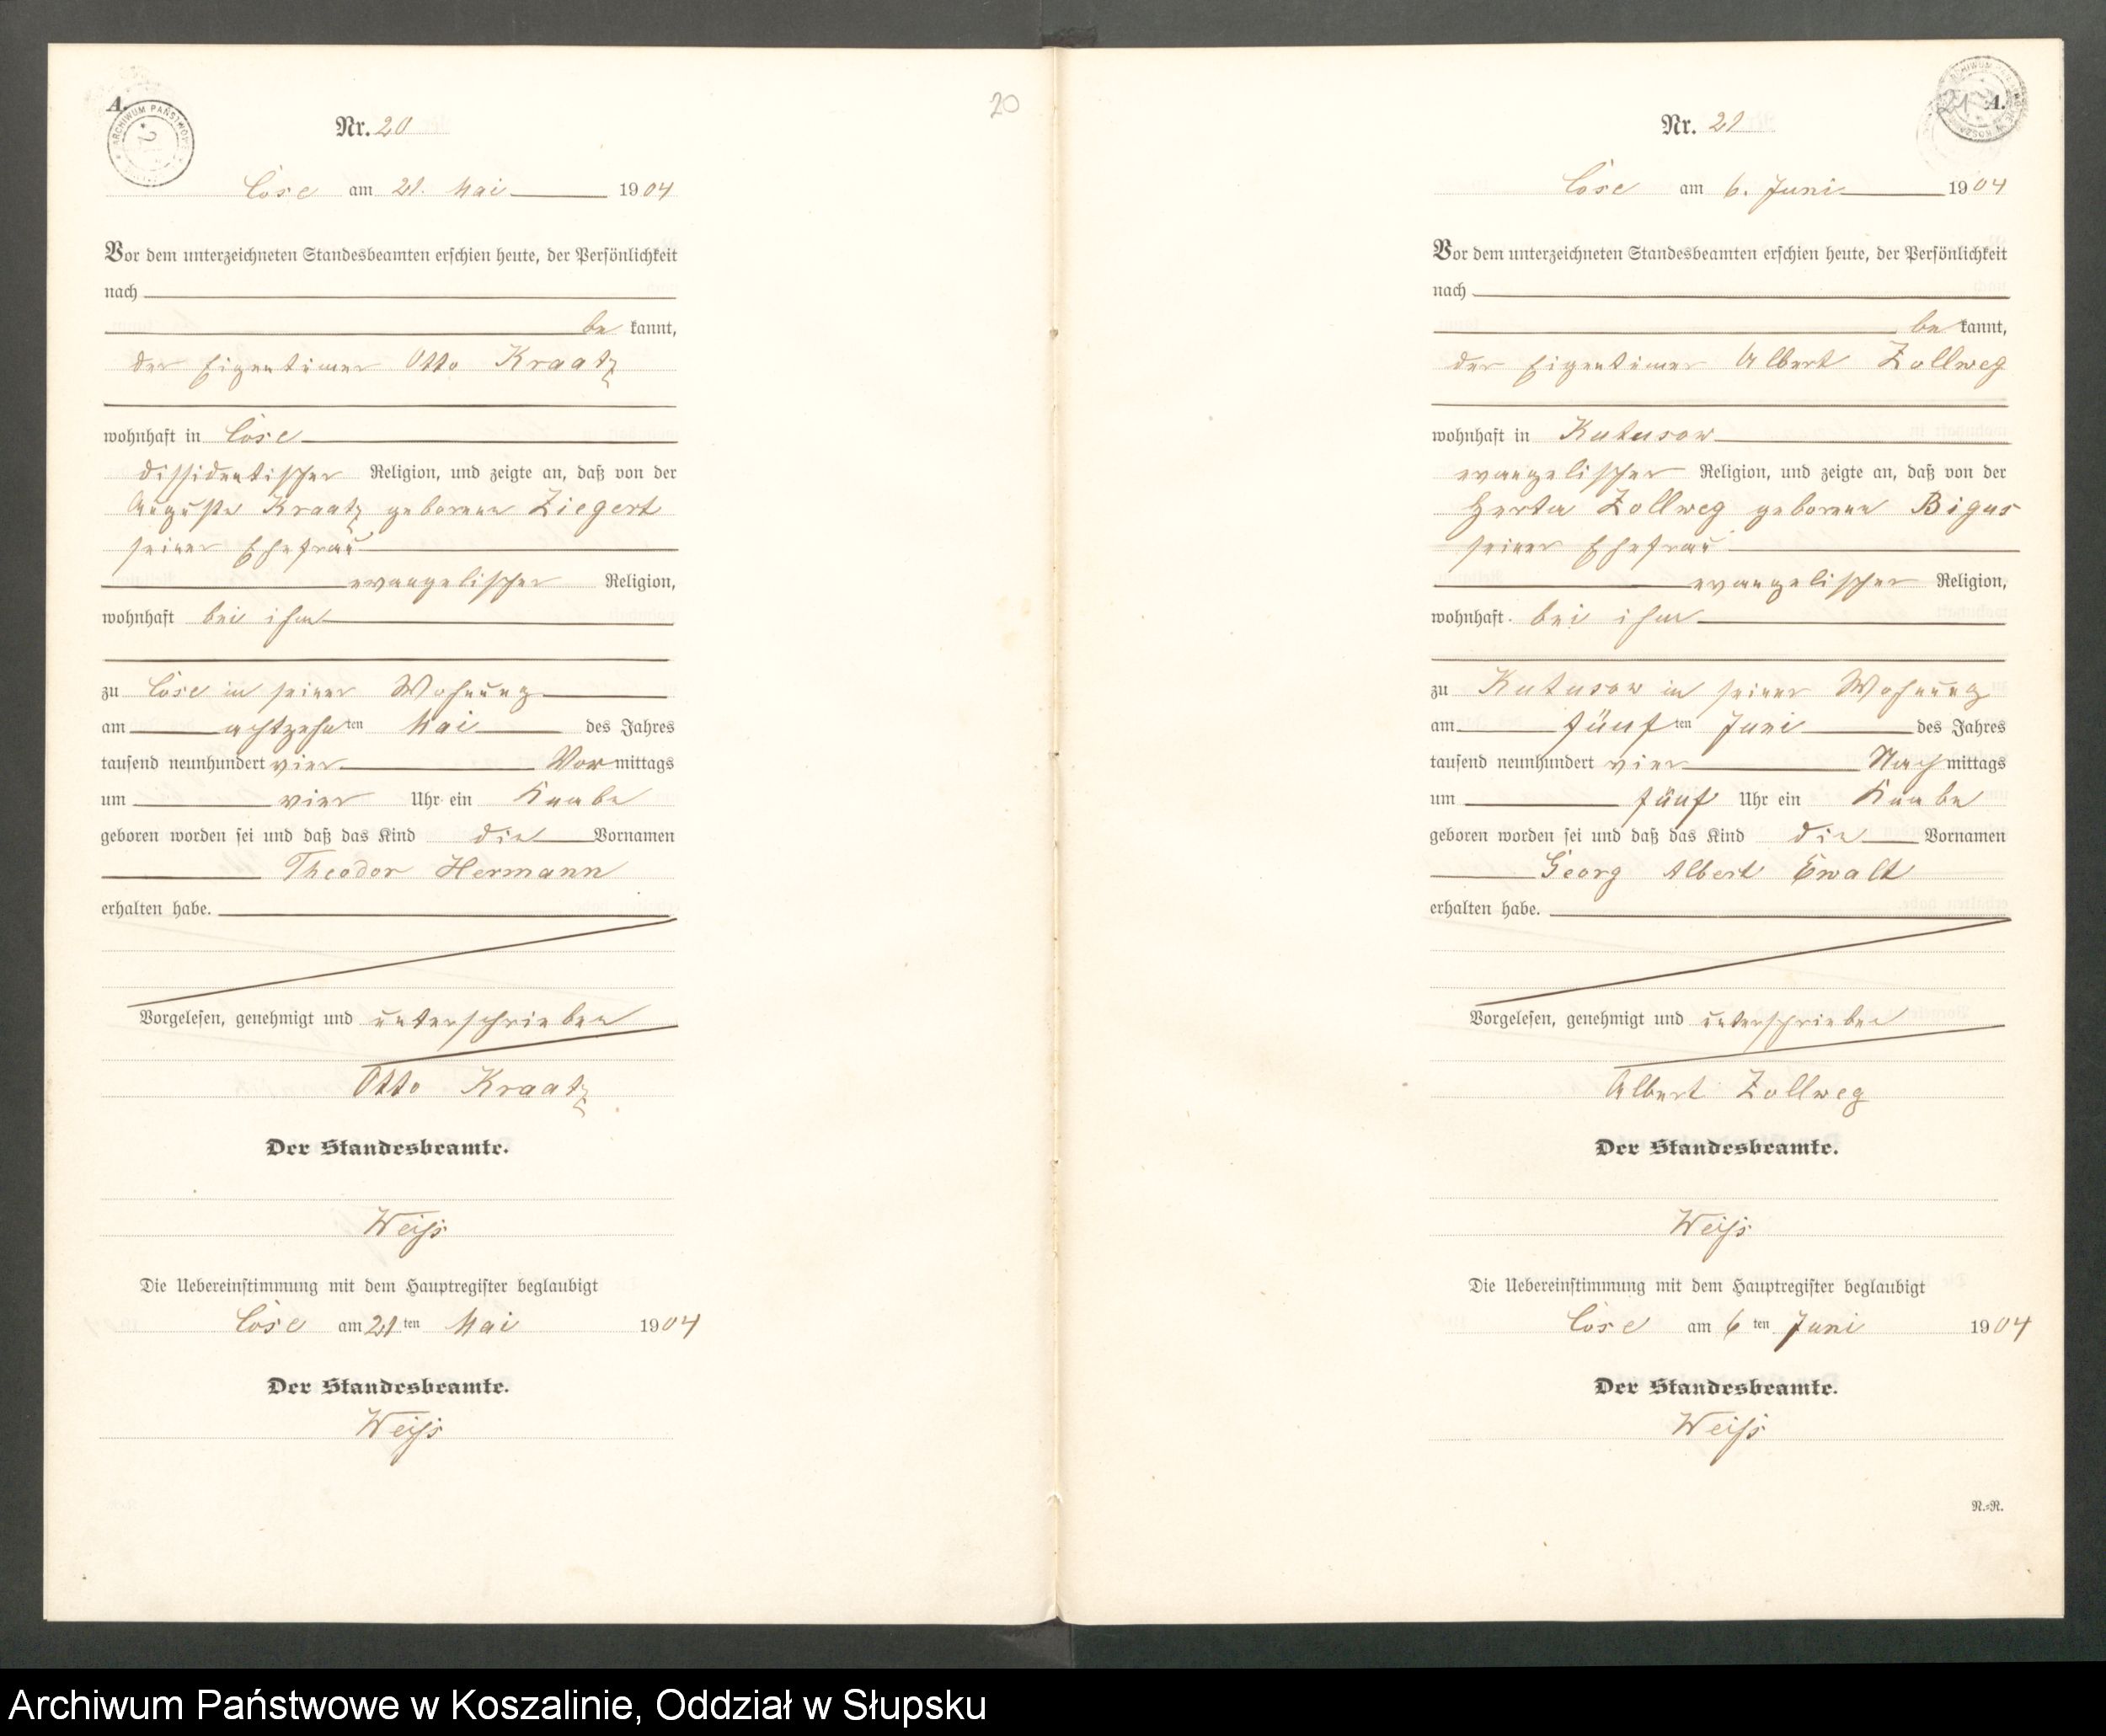 A.
ARCHIWUM PAŃSTWOWE
Nr. 20
20
Cose am 21. Mai 1904
Vor dem unterzeichneten Standesbeamten erschien heute, der Persönlichkeit
nach
be kannt,
der Eigentümer Otto Kraatz
wohnhaft in Cose
dissidentischer Religion, und zeigte an, daß von der
Auguste Kraatz geborenen Ziegert
seiner Ehefrau
evangelischer Religion,
wohnhaft bei ihm
zu Cose in seiner Wohnung
am achtzehn ten Mai des Jahres
tausend neunhundert vier Vor mittags
um vier Uhr ein Knabe
geboren worden sei und daß das Kind die Vornamen
Theodor Hermann
erhalten habe.
Vorgelesen, genehmigt und unterschrieben
Otto Kraatz
Der Standesbeamte.
Weiß
Die Uebereinstimmung mit dem Hauptregister beglaubigt
Cose am 21 ten Mai 1904
Der Standesbeamte.
Weiß
21
A.
Nr. 21
Cose am 6. Juni 1904
Vor dem unterzeichneten Standesbeamten erschien heute, der Persönlichkeit
nach
be kannt,
der Eigentümer Albert Zollweg
wohnhaft in Kutusow
evangelischer Religion, und zeigte an, daß von der
Herta Zollweg geborenen Bigus
seiner Ehefrau
evangelischer Religion,
wohnhaft bei ihm
zu Kutusow in seiner Wohnung
am fünf ten Juni des Jahres
tausend neunhundert vier Nach mittags
um fünf Uhr ein Knabe
geboren worden sei und daß das Kind die Vornamen
Georg Albert Ewalt
erhalten habe.
Vorgelesen, genehmigt und unterschrieben
Albert Zollweg
Der Standesbeamte.
Weiß
Die Uebereinstimmung mit dem Hauptregister beglaubigt
Cose am 6 ten Juni 1904
Der Standesbeamte.
Weiß
R.=R.
Archiwum Państwowe w Koszalinie, Oddział w Słupsku